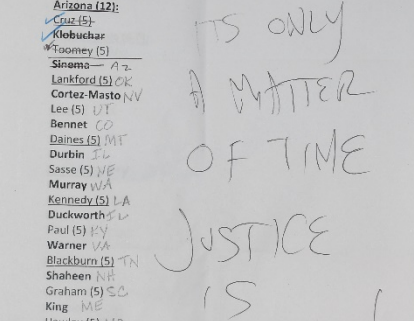 Arizona (12):
Cruz (5)
Klobuchar
Toomey (5)
Sinema AZ
Lankford (5) OK
Cortez-Masto NV
Lee (5) UT
Bennet CO
Daines (5) MT
Durbin IL
Sasse (5) NE
Murray WA
Kennedy (5) LA
Duckworth IL
Paul (5) KY
Warner VA
Blackburn (5) TN
Shaheen NH
Graham (5) SC
King ME
ITS ONLY
A MATTER
OF TIME
JUSTICE
IS